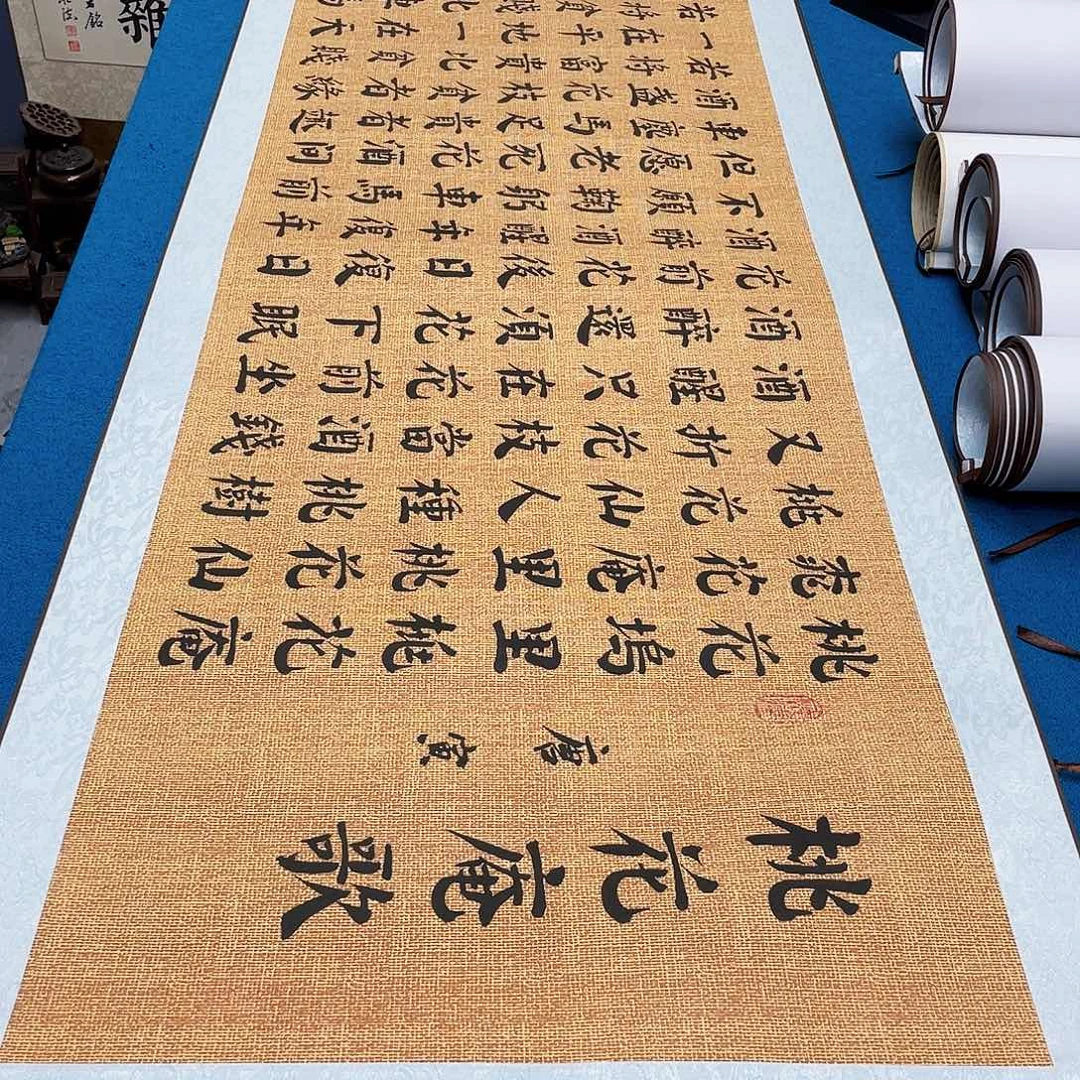 桃花庵歌
唐寅
桃花塢里桃花庵
花庵里桃花仙
桃花仙人種桃樹
又折花枝當酒錢
酒醒只在花前坐
酒醉還須花下眠
花前花後日復日
酒醉酒醒年復年
不願鞠躬車馬前
但愿老死花酒间
車塵馬足貴者趣
酒盞花枝貧者緣
若將富貴比貧賤
一在平地一在天
若將貧賤比車馬
雜
銘